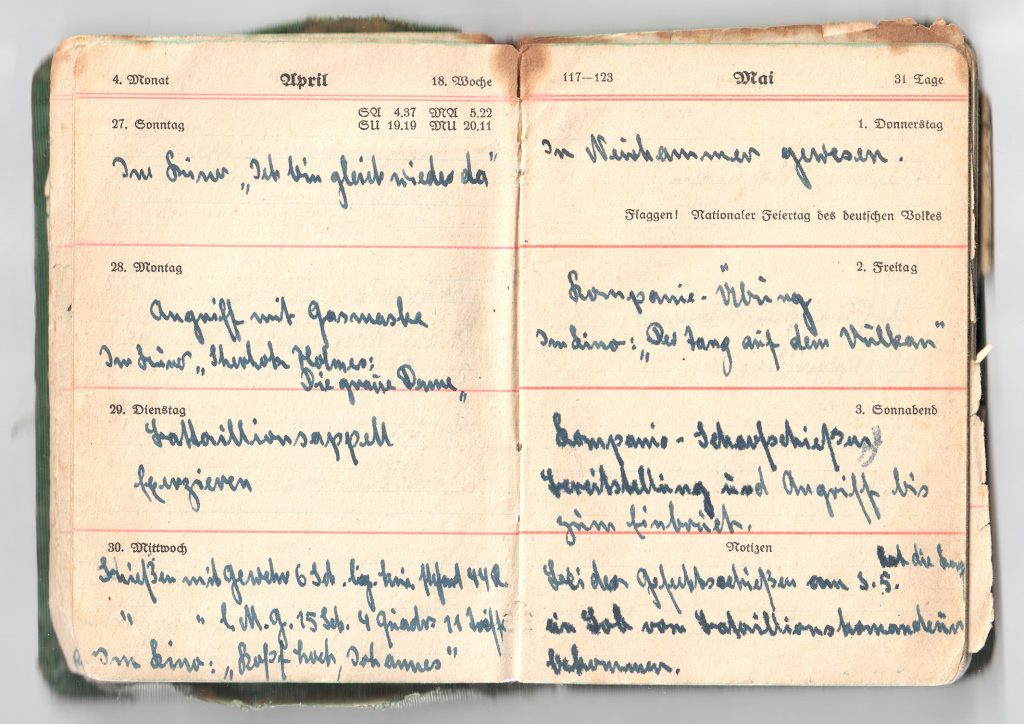 4. Monat April 18. Woche
27. Sonntag
SA 4.37 MA 5.22
SU 19.19 MU 20.11
Im Kino „Ich bin gleich wieder da"
28. Montag
Angriff mit Gasmaske
Im Kino „Sherlok Holmes:
Die graue Dame„
29. Dienstag
Battaillionsappell
Exerzieren
30. Mittwoch
Schießen mit Gewehr 6 Sch. lig. 44 R.
" " l. M.G. 15 Sch. 4 Quadr. 11 Treff
Im Kino: „Kopf hoch, Johannes"
117—123 Mai 31 Tage
1. Donnerstag
In Neuhammer gewesen.
Flaggen! Nationaler Feiertag des deutschen Volkes
2. Freitag
Kompanie-Übung
Im Kino: „Der Tanz auf dem Vulkan"
3. Sonnabend
Kompanie-Scharfschießen
Bereitstellung und Angriff bis
zum Einbruch.
Notizen
hat die
Bei der Gefechtsschießen am 3.5.
ein Lob vom Bataillionskomandeur
bekommen.